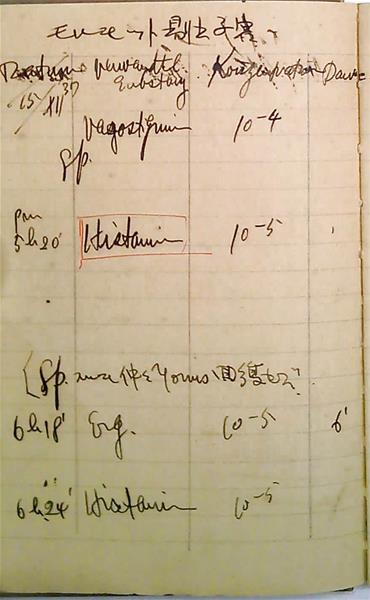 モルモット剔出子宮
Datum verwandte Substanz Konzentration Dauer
15/XII 37
Vagostigmin 10-4
Sp.
pm 5h20' Histamin 10-5
[Sp.
6h18' Erg. 10-5 6'
6h24' Histamin 10-5